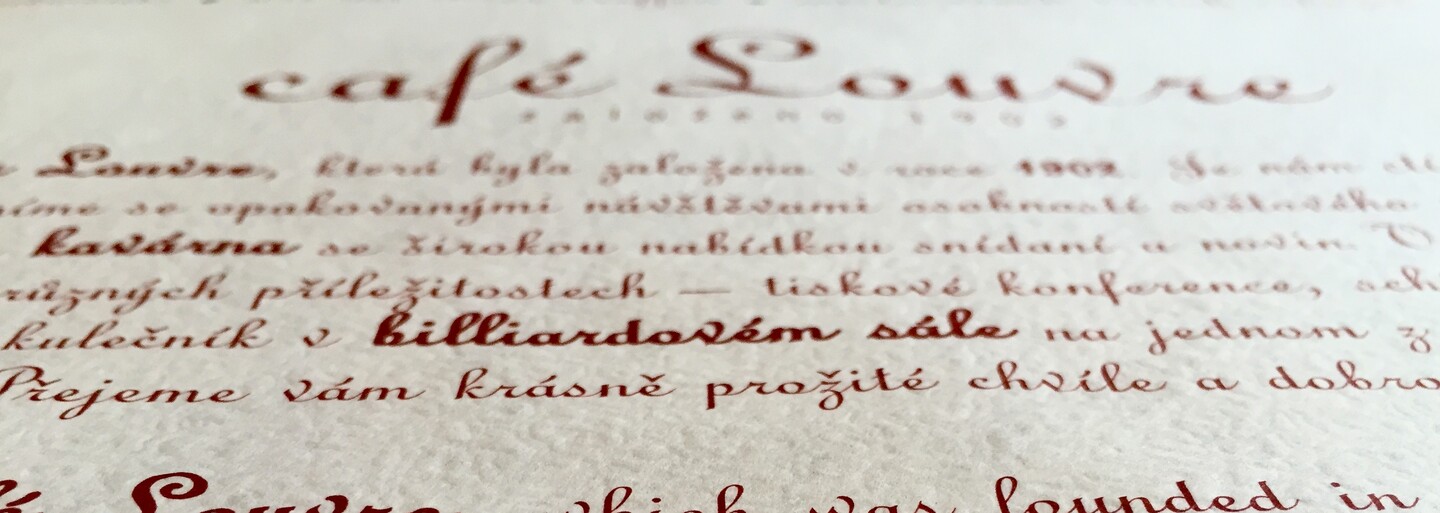 café Louvre
založeno 1902
Louvre, která byla založena v roce 1902. Je nám
se opakovanými návštěvami osobností světového
kavárna se širokou nabídkou snídaní a novin. V
různých příležitostech — tiskové konference,
kulečník v billiardovém sále na jednom z
Přejeme vám krásně prožité chvíle a dobro
Louvre, which was founded in